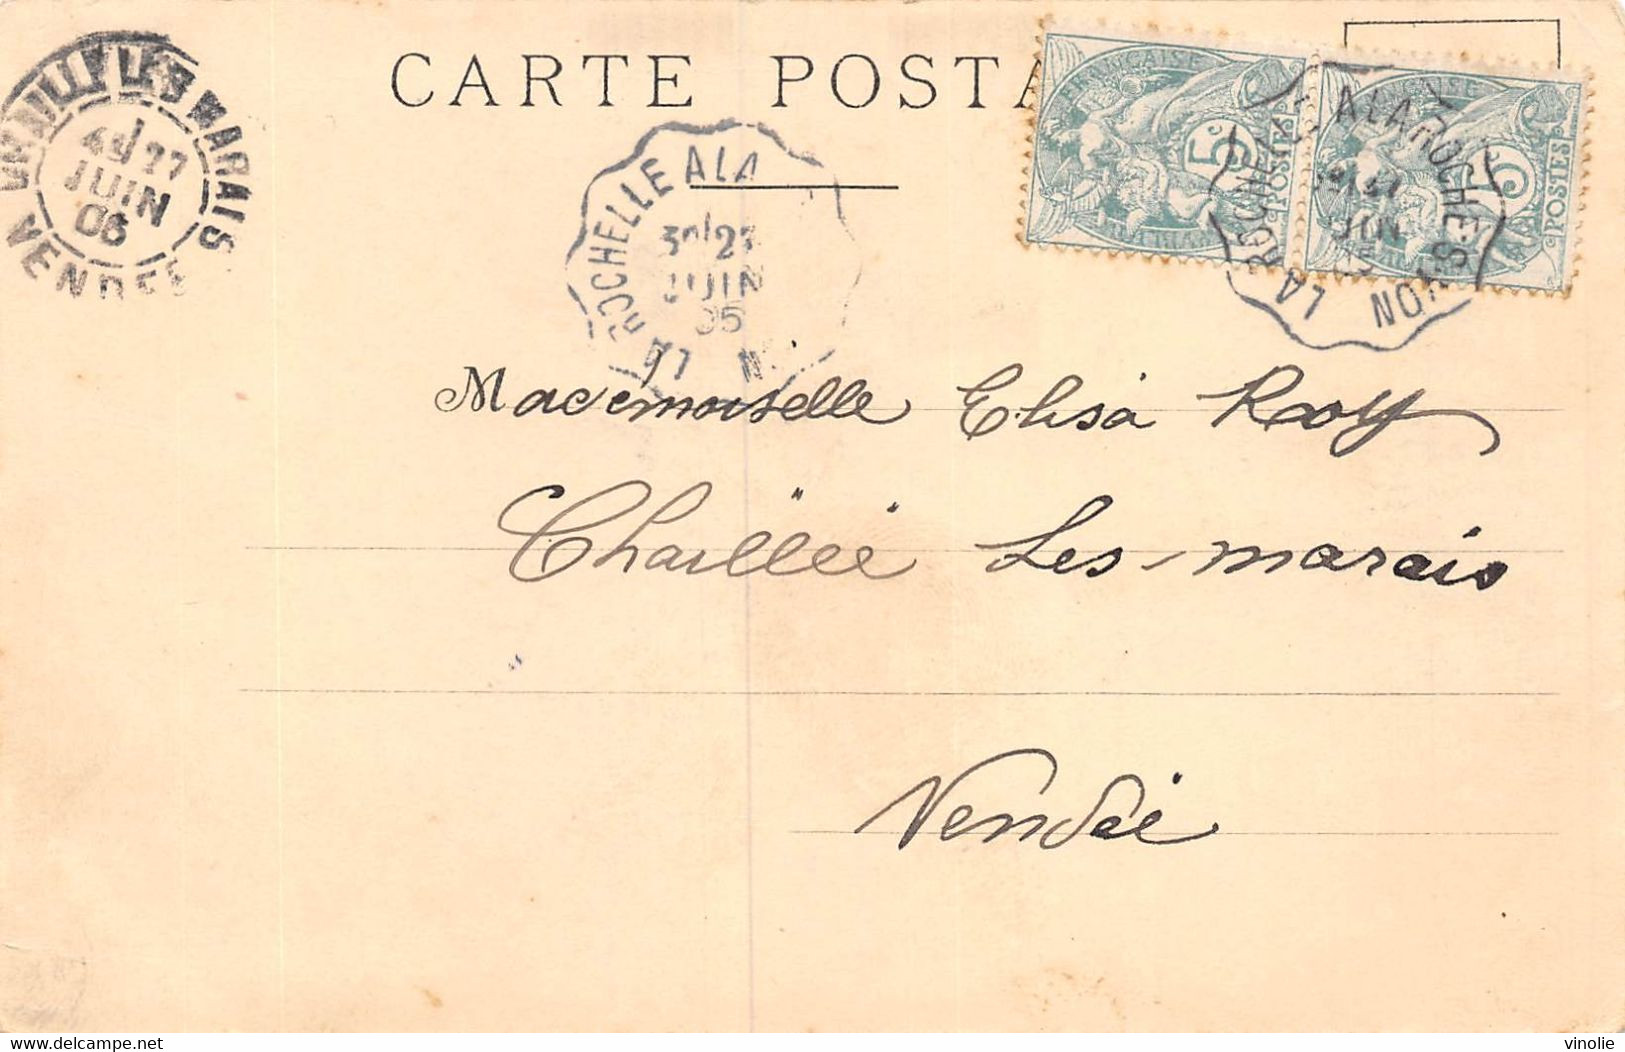 CARTE POSTA
CHAILLÉ LES MARAIS
27
JUIN
VENDEE
LA ROCHELLE A LA
27
JUIN
05
FRANÇAISE
5c
POSTES
LA ROCHELLE A LA ROCHE-S-YON
JUIN
5
POSTES
Mademoiselle Elisa Roy
Chaillée Les-marais
Vendée
delcampe.net
vinolie